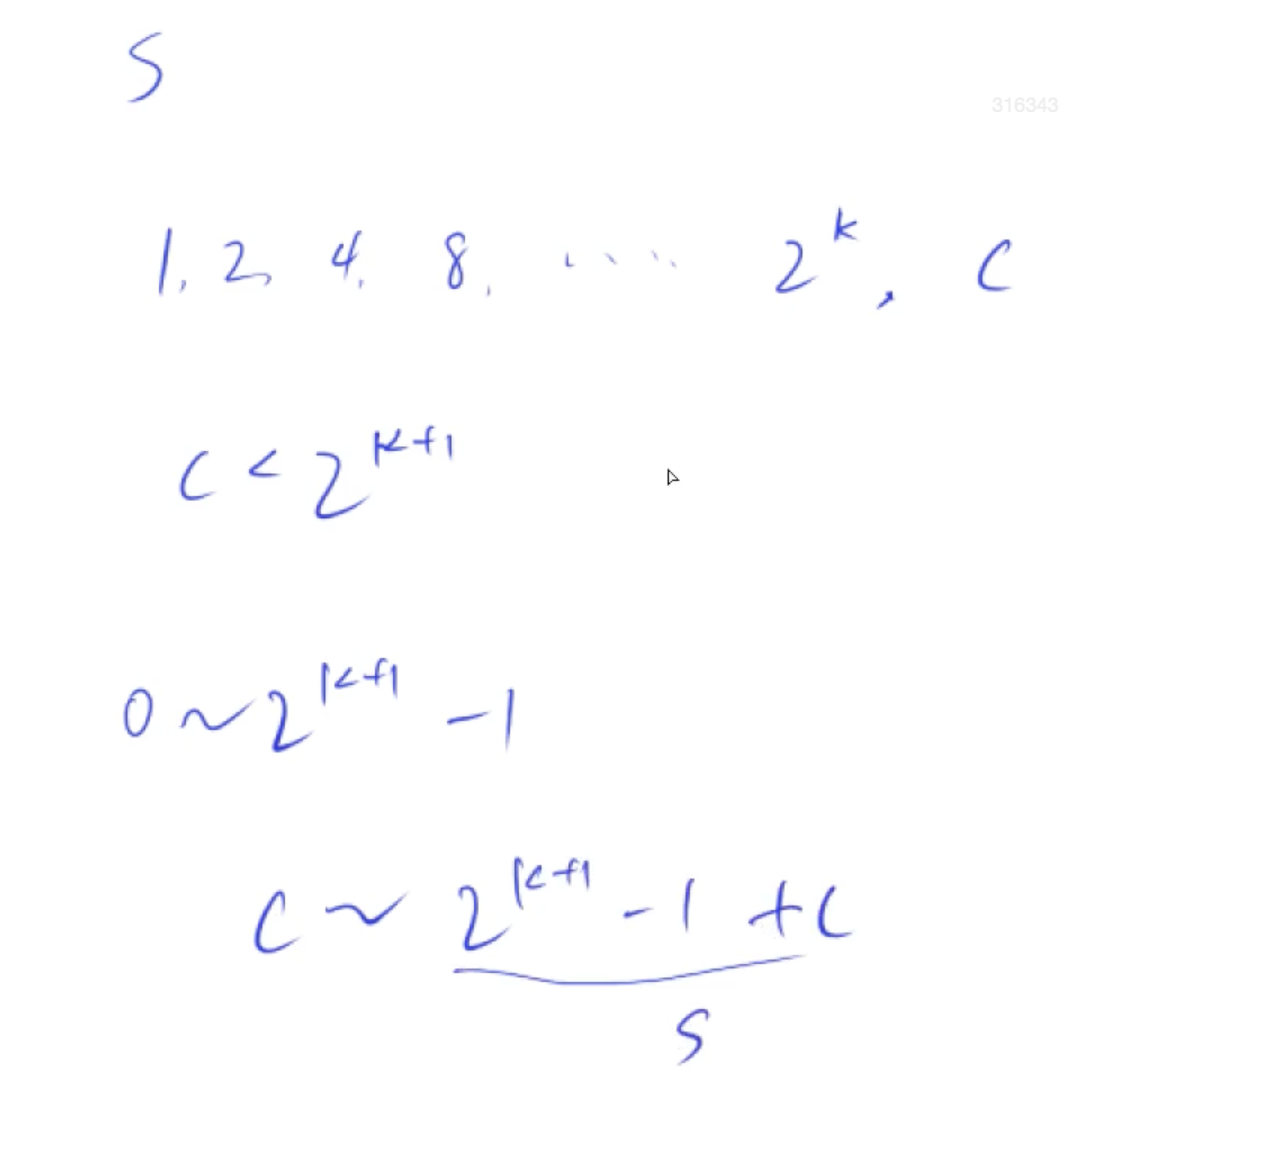 S
316343
1, 2, 4, 8, ..... 2^k, C
C < 2^{k+1}
0 ~ 2^{k+1} - 1
C ~ 2^{k+1} - 1 + C
S